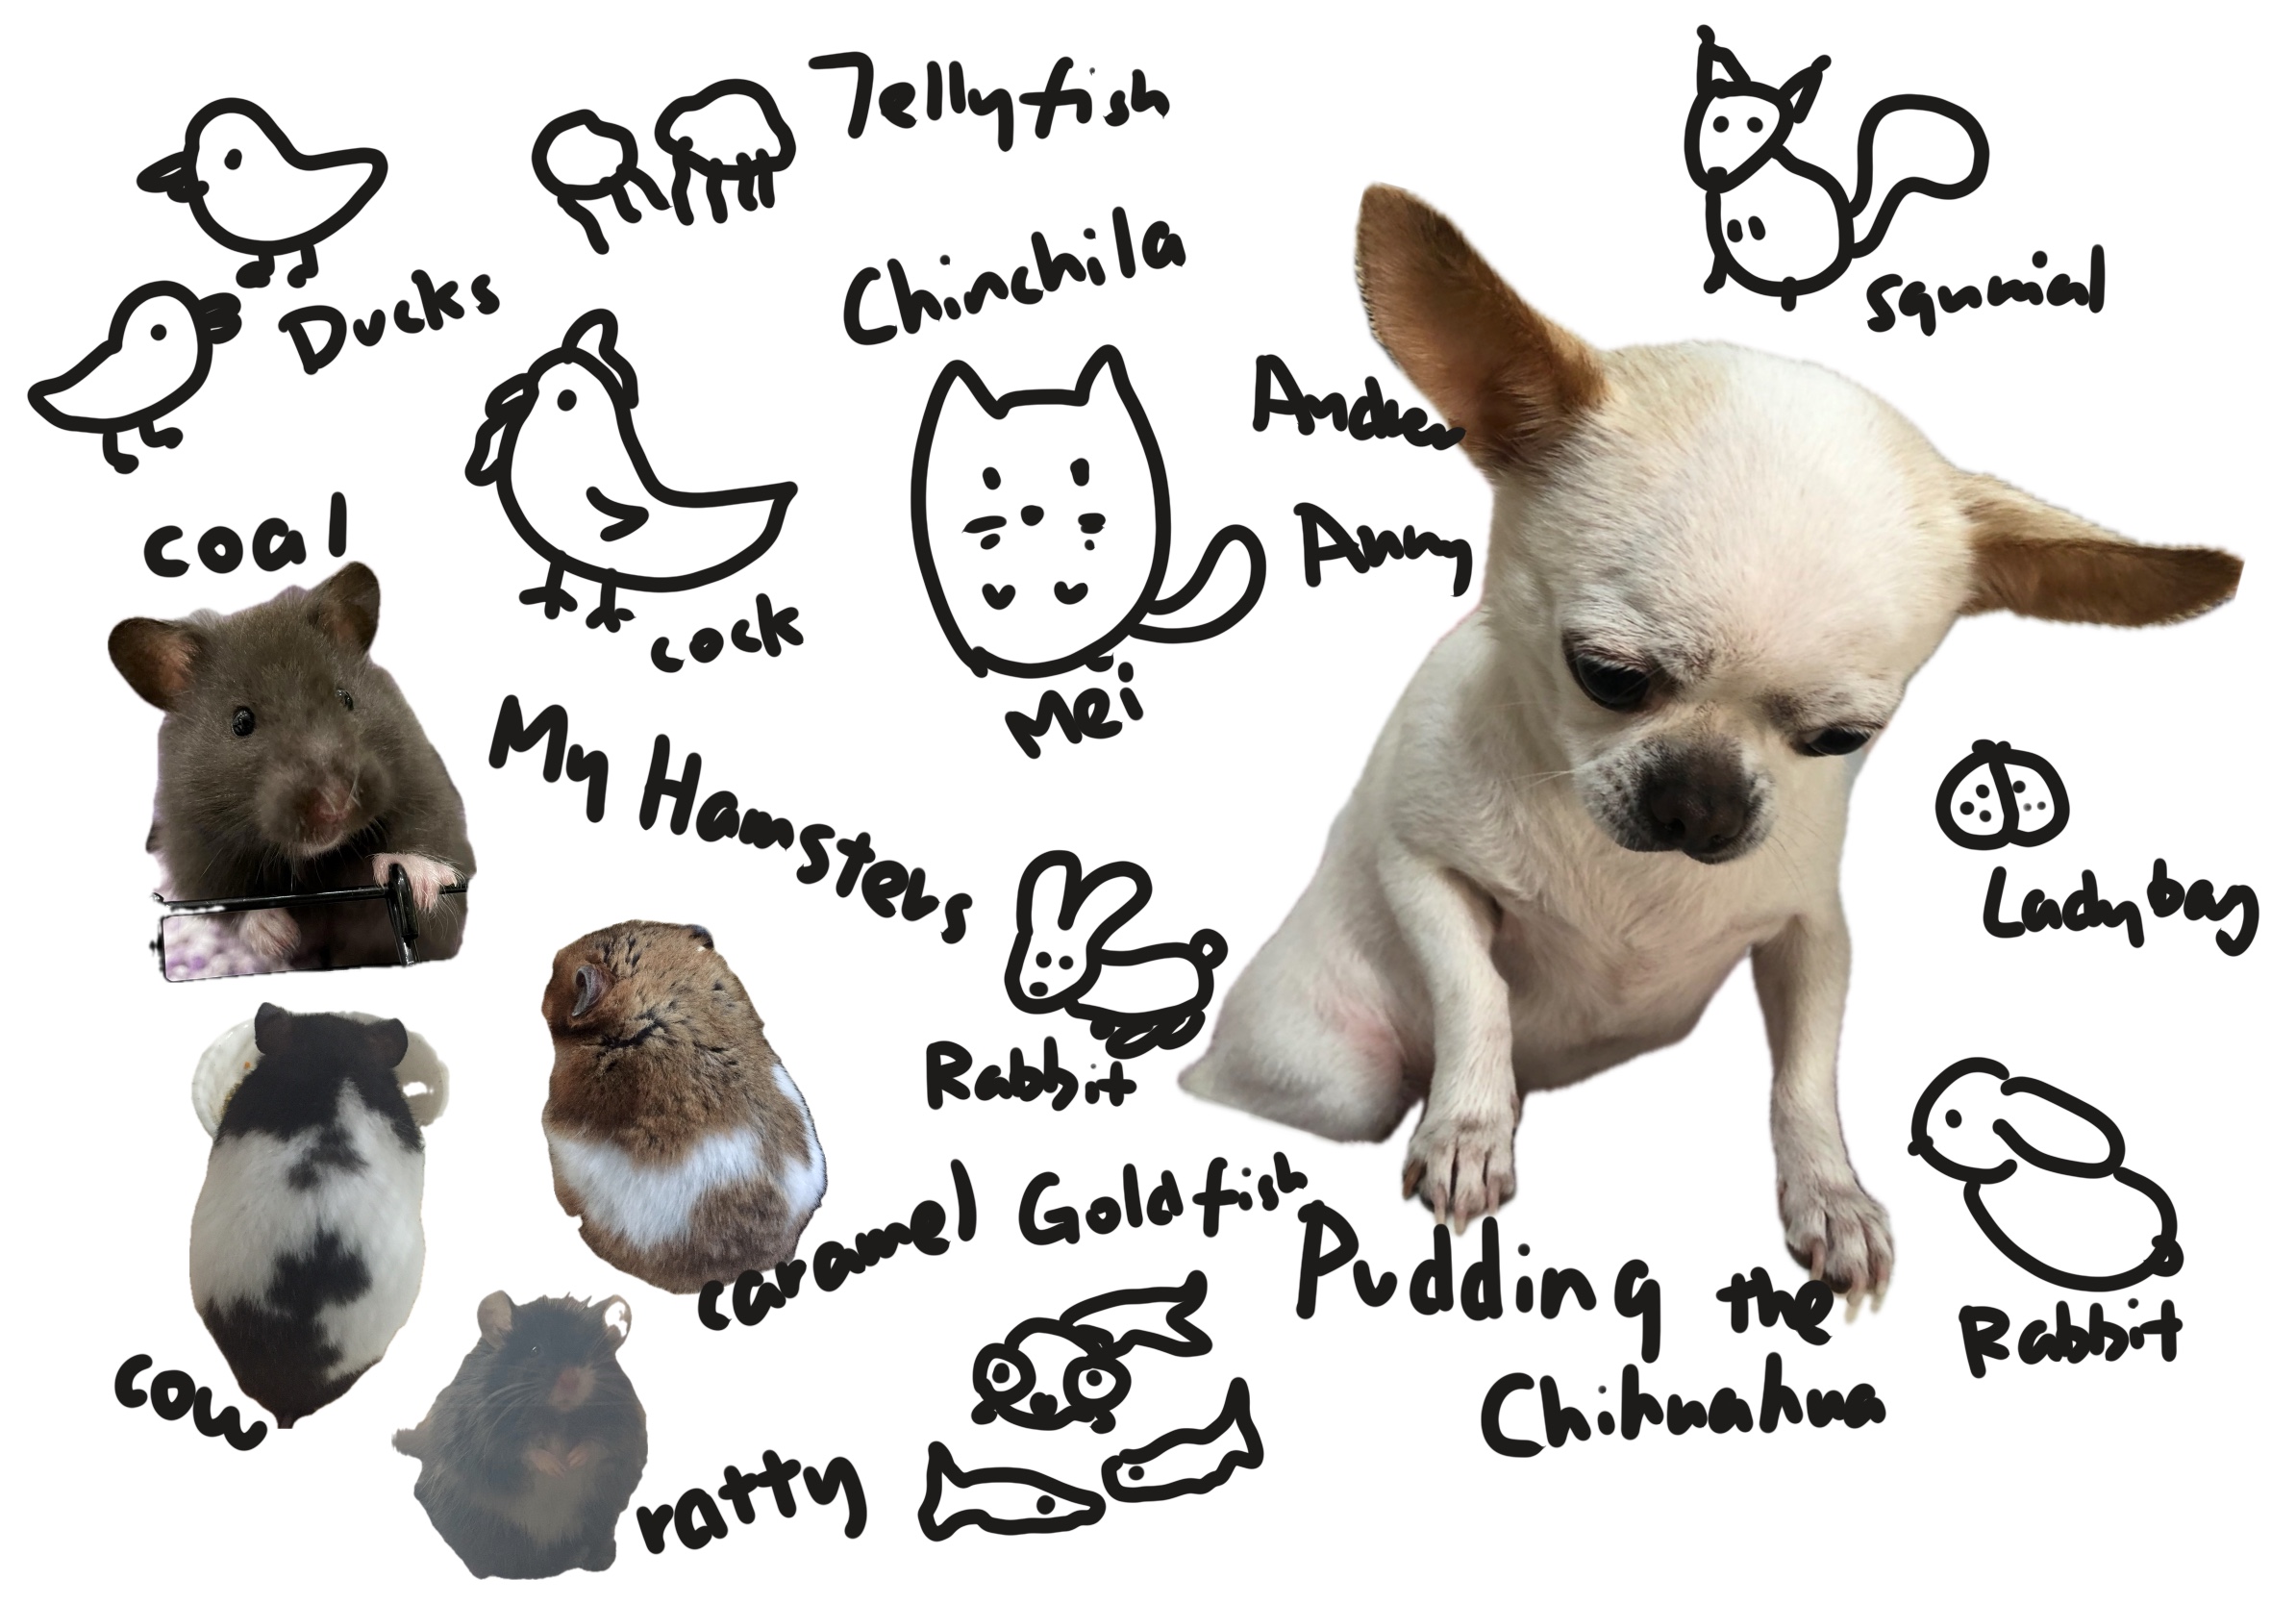 Jellyfish
Ducks
Chinchila
squrrial
coal
cock
Mei
Anny
My Hamsters
Ladybag
Rabbit
caramel
Goldfish
Pudding the
Chihuahua
Rabbit
cow
ratty